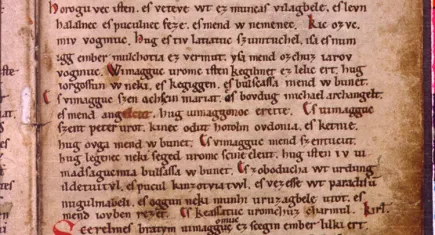 horogu vec isten. es veteve wt ez muncas vilagbele. es levn
halalnec es puculnec feze. es mend w nemenec. Kic ozvc.
miv vogmuc. Hug es tiv latiatuv szumtuchel. isa es num
igg ember mulchotia ez vermut. ysa mend ozchuz iarov
vogmuc. Wimagguc uromv isten kegilmet ez lelic ert. hug
iorgossun w neki. es kegiggen. es bulsassa mend w bunet.
Es vimagguc szen achscin mariat. es bovdug michael archangelt.
es mend angelcut. hug uimaggonoc erette. Es uimagguc
szent peter urot. kinec odut hotolm ovdonia. es ketnie.
hug ovga mend w bunet. Es vimagguc mend szentucut.
hug legenec neki seged uromc scine eleut. hug isten iv ui
madsagucmia bulsassa w bunet. Es zoboducha wt urdung
ildetuitvl. es pucul kinzotviatwl. es vezesse wt paradisu
nugulmabeli. es oggun neki munhi uruzagbele utot. es
mend iovben rezet. Es keassatuc uromchuz charmul. Kirl.
Scerelmes bratym uimagg omuc ez scegin ember lilki ert.